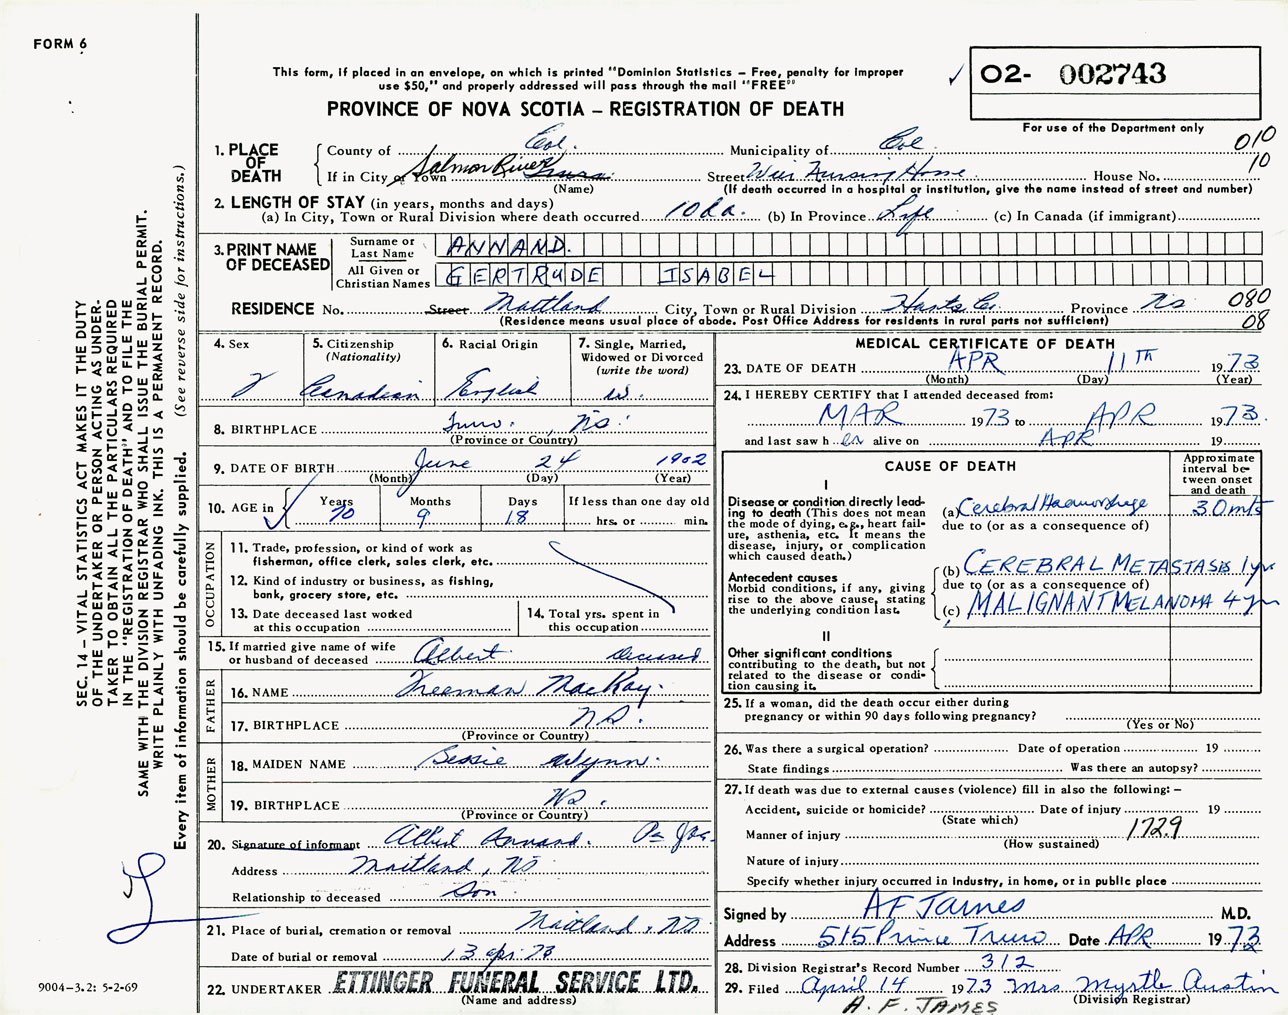 FORM 6
This form, if placed in an envelope, on which is printed "Dominion Statistics – Free, penalty for improper
use $50," and properly addressed will pass through the mail "FREE"
PROVINCE OF NOVA SCOTIA – REGISTRATION OF DEATH
02- 002743
For use of the Department only
010
10
1. PLACE OF DEATH
County of Col. Municipality of Col
If in City or Town Salmon River Truro Street Weir Nursing Home House No.
(Name) (If death occurred in a hospital or institution, give the name instead of street and number)
2. LENGTH OF STAY (in years, months and days)
(a) In City, Town or Rural Division where death occurred 10 da. (b) In Province Life (c) In Canada (if immigrant)
3. PRINT NAME OF DECEASED
Surname or Last Name ANNAND.
All Given or Christian Names GERTRUDE ISABEL
RESIDENCE No. Street Maitland City, Town or Rural Division Hants Co. Province NS 080
(Residence means usual place of abode. Post Office Address for residents in rural parts not sufficient) 08
4. Sex
5. Citizenship (Nationality) Canadian
6. Racial Origin English
7. Single, Married, Widowed or Divorced (write the word) W.
8. BIRTHPLACE Truro, NS.
(Province or Country)
9. DATE OF BIRTH June 24 1902
(Month) (Day) (Year)
10. AGE in Years 70 Months 9 Days 18 If less than one day old hrs. or min.
OCCUPATION
11. Trade, profession, or kind of work as
fisherman, office clerk, sales clerk, etc.
12. Kind of industry or business, as fishing,
bank, grocery store, etc.
13. Date deceased last worked
at this occupation
14. Total yrs. spent in
this occupation
15. If married give name of wife
or husband of deceased Albert deceased
FATHER
16. NAME Freeman MacKay.
17. BIRTHPLACE NS.
(Province or Country)
MOTHER
18. MAIDEN NAME Bessie Wynn.
19. BIRTHPLACE NS.
(Province or Country)
20. Signature of informant Albert Annand. Per
Address Maitland, NS
Relationship to deceased Son
21. Place of burial, cremation or removal Maitland, NS
Date of burial or removal 13 Apr. 73
22. UNDERTAKER ETTINGER FUNERAL SERVICE LTD.
(Name and address)
MEDICAL CERTIFICATE OF DEATH
23. DATE OF DEATH APR 11TH 1973
(Month) (Day) (Year)
24. I HEREBY CERTIFY that I attended deceased from:
MAR 1973 to APR 1973.
and last saw her alive on APR 19
CAUSE OF DEATH
Approximate interval between onset and death
I
Disease or condition directly leading to death (This does not mean the mode of dying, e.g., heart failure, asthenia, etc. It means the disease, injury, or complication which caused death.)
(a) Cerebral Haemorrhage 30 mts
due to (or as a consequence of)
Antecedent causes
Morbid conditions, if any, giving rise to the above cause, stating the underlying condition last.
(b) CEREBRAL METASTASIS 1 yr
due to (or as a consequence of)
(c) MALIGNANT MELANOMA 4 yrs
II
Other significant conditions
contributing to the death, but not related to the disease or condition causing it.
25. If a woman, did the death occur either during
pregnancy or within 90 days following pregnancy?
(Yes or No)
26. Was there a surgical operation? Date of operation 19
State findings Was there an autopsy?
27. If death was due to external causes (violence) fill in also the following: –
Accident, suicide or homicide? Date of injury 19
(State which)
Manner of injury 1729
(How sustained)
Nature of injury
Specify whether injury occurred in industry, in home, or in public place
Signed by AF James M.D.
Address 515 Prince Truro Date APR 1973
28. Division Registrar's Record Number 312
29. Filed April 14 1973 Mrs Myrtle Austin
(Division Registrar)
A. F. JAMES
SEC. 14 – VITAL STATISTICS ACT MAKES IT THE DUTY
OF THE UNDERTAKER OR PERSON ACTING AS UNDER-
TAKER TO OBTAIN ALL THE PARTICULARS REQUIRED
IN THE "REGISTRATION OF DEATH" AND TO FILE THE
SAME WITH THE DIVISION REGISTRAR WHO SHALL ISSUE THE BURIAL PERMIT.
WRITE PLAINLY WITH UNFADING INK. THIS IS A PERMANENT RECORD.
Every item of information should be carefully supplied. (See reverse side for instructions.)
9004-3.2: 5-2-69